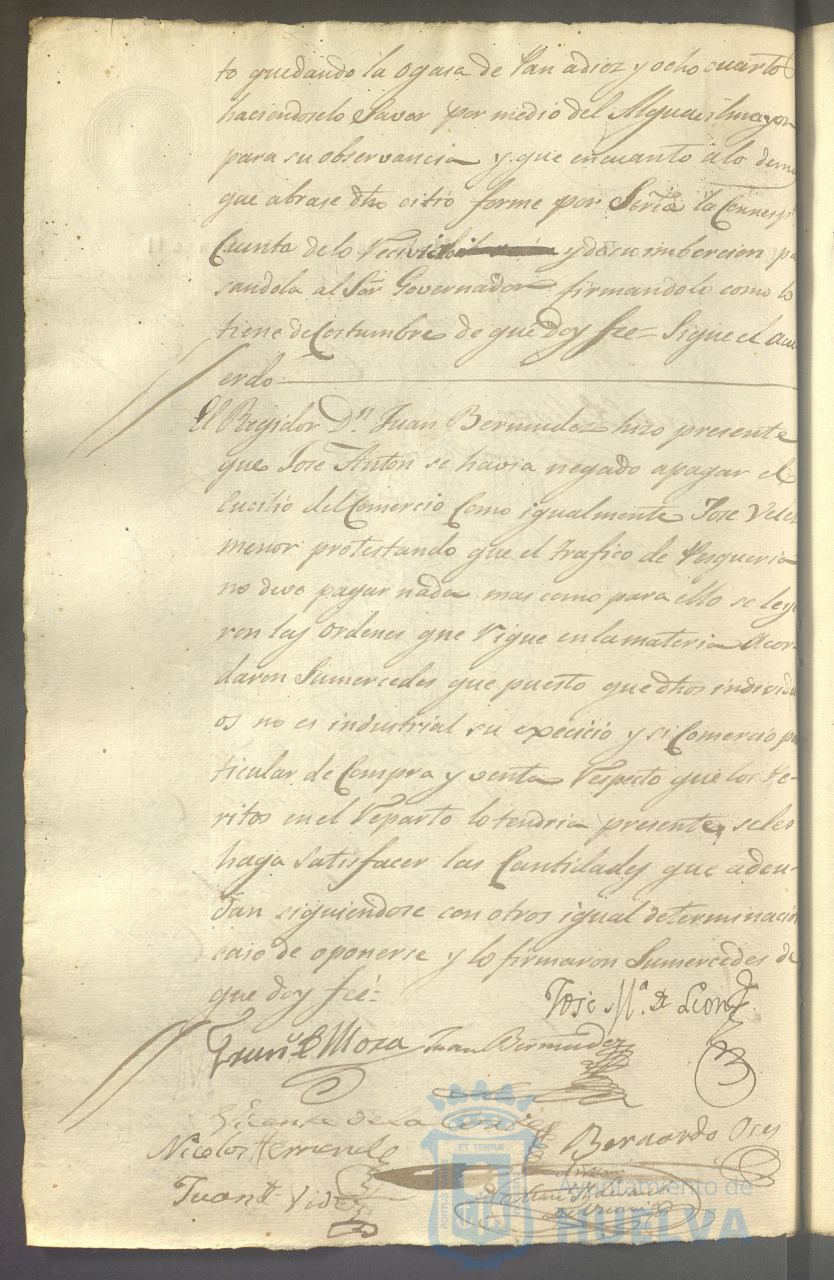 to quedando la ogasa de Pan adiez y ocho cuarto
haciendoselo Saver por medio del Alguacil mayor
para su observancia y que encuanto alo dema
que abrase dho citio forme por Sería la Corresp
Cuenta delo Recivido y de su imbercion pa
sandola al Sor Governador firmandolo como lo
tiene de Costumbre de que Doy fee = Sigue el acu
erdo
El Regidor Dn Juan Bermudez hizo presente
que Jose Anton se havia negado apagar el
Cucilio del Comercio Como igualmente Jose Velez
menor protestando que el trafico de Pesqueria
no deve pagar nada mas como para ello se leye
ron las ordenes que Rigue en la materia Acor
daron Sumercedes que puesto que dhos individu
os no es industrial su execicio y si Comercio pa
ticular de Compra y venta Respecto que los Pe-
ritos en el Reparto lo tendria presente, seles
haga Satisfacer las Cantidades que adeu-
dan siguiendose con otros igual determinación
caso de oponerse y lo firmaron Sumercedes de
que doy fee =
Jose Ma. de Leon
Franco de Mora Juan Bermudez
Vicente de la
Nicolas Hernandez Bernardo
Juan
Ayuntamiento de
HUELVA